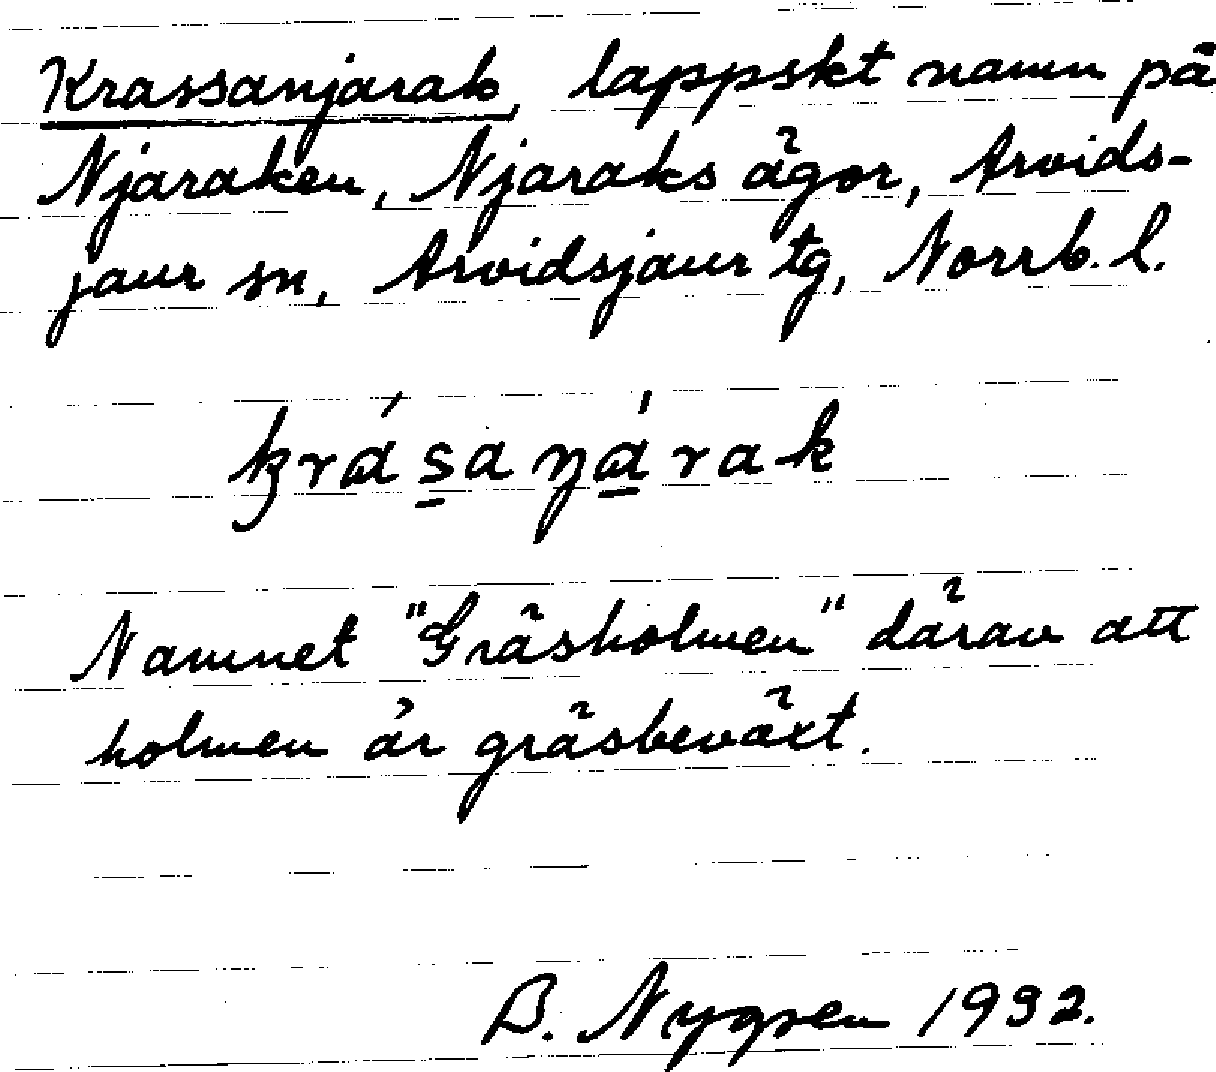 Krassanjarak, lappskt namn på
Njaraken, Njaraks ägor, Arvids-
jaur sn, Arvidsjaur tg, Norrb. l.
Namnet "Gräsholmen" därav att
holmen är gräsbeväxt.
B. Nygren 1932.